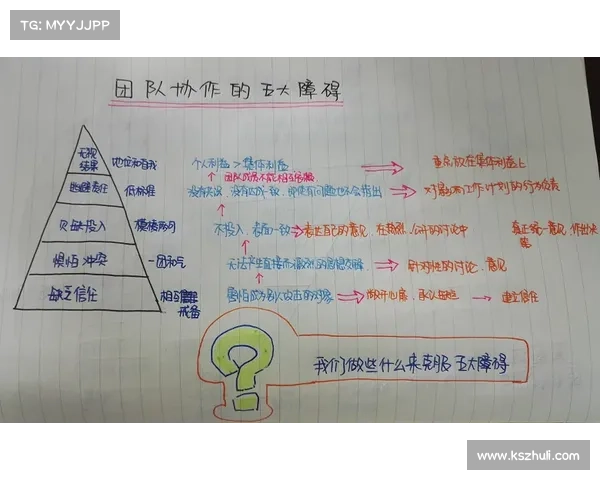 TG: MYYJJPP
团队协作的五大障碍
无视
结果
地位和自我
个人利益 > 集体利益
重点放在集体利益上
逃避责任
低标准
团队成员不能相互
没有共识,没有达成一致,即使有问题也不会指出
对最后工作计划的行为负责
欠缺投入
模棱两可
不投入,表面一致
表达自己的意见,在激烈、公开的讨论中
真正统一意见,作出决
策
惧怕冲突
一团和气
无法产生直接而激烈的思想交锋
针对性的讨论、意见
缺乏信任
相互
戒备
害怕成为别人攻击的对象
敞开心扉,承认
建立信任
我们做些什么来克服五大障碍
www.kszhuli.com